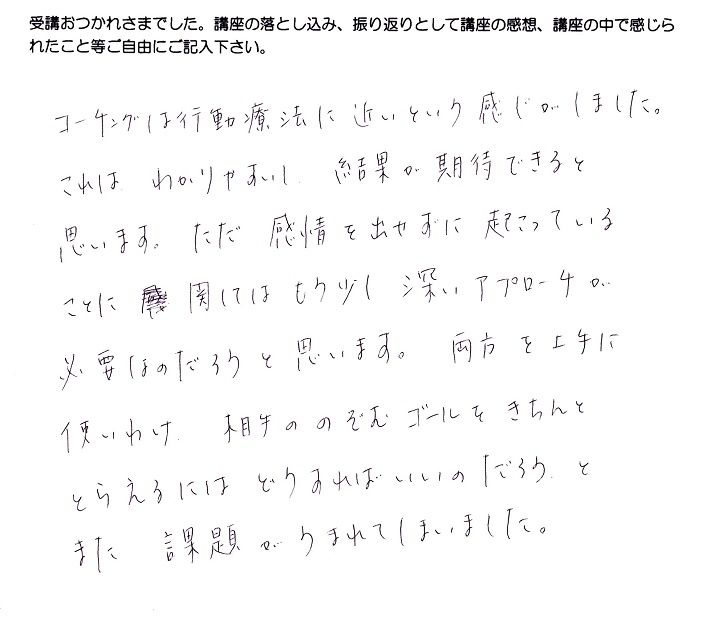 受講おつかれさまでした。講座の落とし込み、振り返りとして講座の感想、講座の中で感じら
れたこと等ご自由にご記入下さい。
コーチングは行動療法に近いという感じがしました。
これは わかりやすいし 結果が期待できると
思います。ただ 感情を出せずに 起こっている
ことに 関してはもう少し 深いアプローチが
必要なのだろうと思います。両方を上手に
使いわけ 相手の のぞむ ゴールを きちんと
とらえるには どうすればいいのだろう と
また 課題がうまれてしまいました。